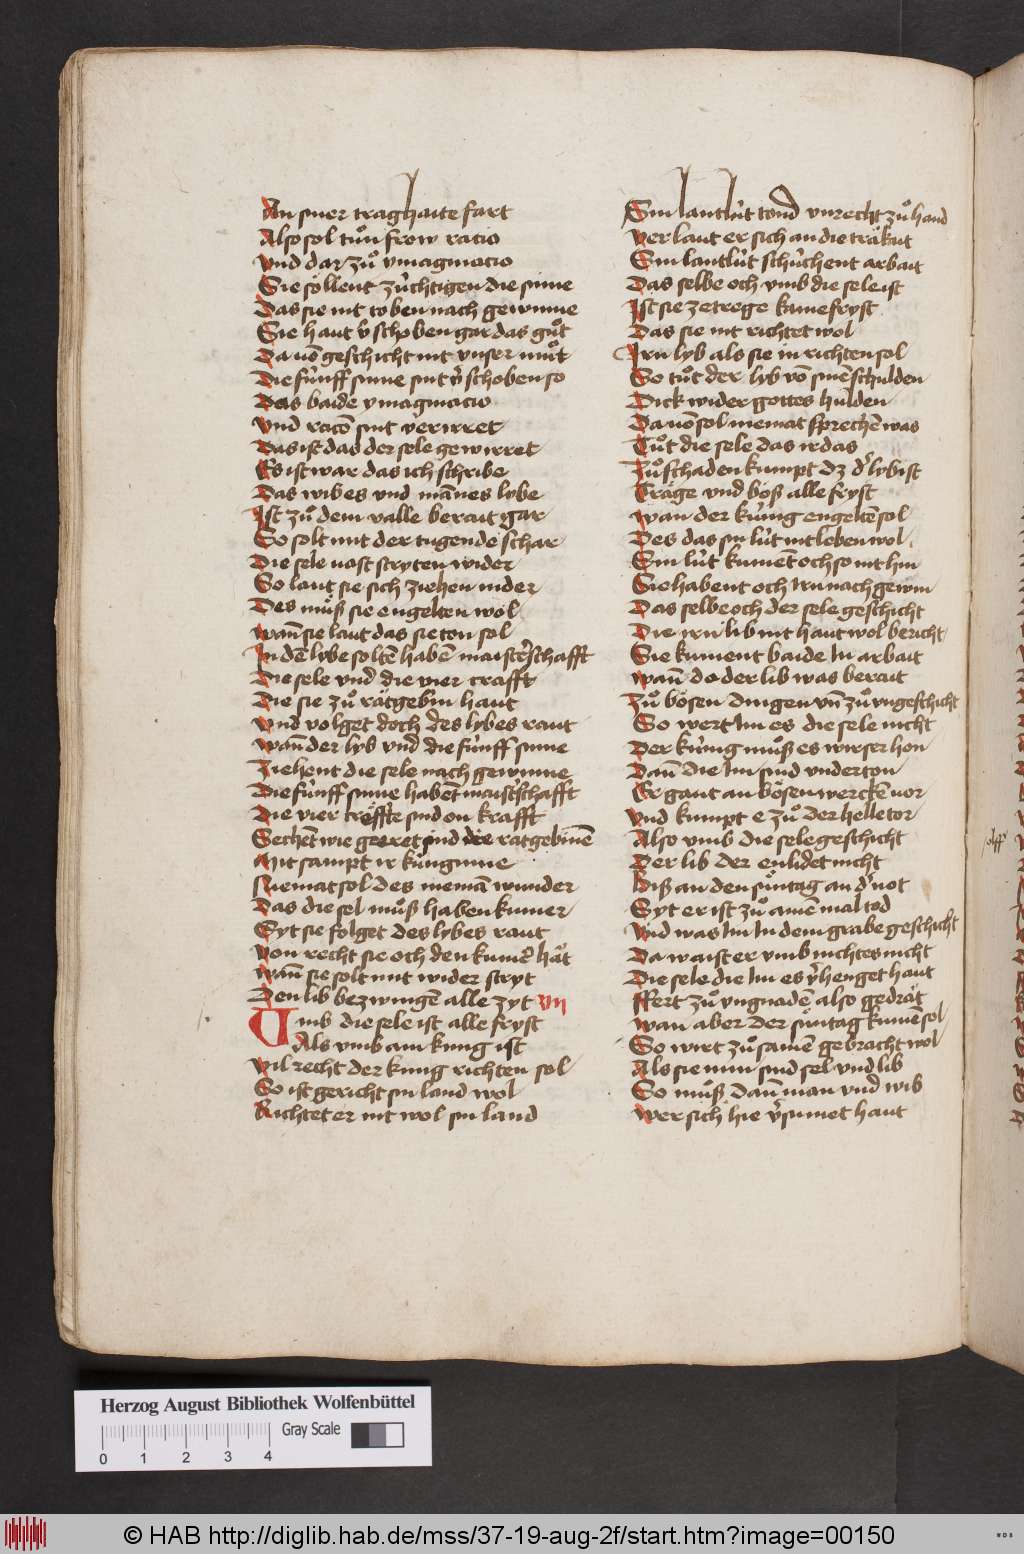 An siner traghaite fart
Also sol tuͦn frow racio
vnd dar zuͦ ymaginacio
Sie soͤllent zuͤchtigen die sinne
Das sie nit toben nach gewinne
Sie haut v̾schoben gar das guͦt
Da vō geschicht nit vnser muͦt
Die fuͤnff sinne sint v̾schoben so
Das baide ymaginacio
vnd racō sint verirret
Das ist das der sele gewirret
Es ist war das ich schribe
Das wibes vnd mānes lybe
Ist zuͦ dem valle berait gar
So solt mit der tugende schar
Die sele vast stryten wider
So laut sie sich ziehen nider
Des muͦß sie engelten wol
wañ sie laut das sie ton sol
In dē lybe soltē habē maist̾schafft
Die sele vnd die vier crafft
Die sie zuͦ raͤtgebin haut
vnd volget doch des lybes raut
wañ der lyb vnd die fuͤnff sinne
Ziehent die sele nach gewinne
Die fuͤnff sinne habēt maist̾schafft
Die vier creͤffte sind on krafft
Sechēt wie geeret sind die ratgebinē
Mit sampt ir kuͤnginne
Niemat sol des niemā wunder
Das die sel muͦß haben kumer
Syt sie folget des lybes raut
von recht sie och den kum̾ haͤt
wañ sie solt mit wider stryt
Den lib bezwingē alle zyt vii
Umb die sele ist alle fryst
Als vmb ain kung ist
vil recht der kung richten sol
So ist gericht sin land wol
Richtet er nit wol sin land
Sin lantluͤt tond vnrecht zuͦ hand
ver laut er sich an die traͤkait
Sin lantluͤt schuͤchent arbait
Das selbe och vmb die sele ist
Ist sie ze trege kaine fryst
Das sie nit richtet wol
Irn lyb als sie in richten sol
So tuͦt der lyb vō sinē schulden
Dick wider gottes hulden
Da vō sol niemat sprechē was
Tuͦt die sele das ir das
Zuͦ schaden kumpt dz d̾ lyb ist
Traͤge vnd boͤß alle fryst
wan der kuͤng engeltē sol
Des das sin luͤt nit leben wol
Sin luͤt kumēt och so nit hin
Sie habent och irn nach gewin
Das selbe och der sele geschicht
Die irn lib nit haut wol bericht
Sie kument baide In arbait
wañ do der lib was berait
Zuͦ boͤsen dingen vñ zuͦ vngeschicht
So wert Im es die sele nicht
Der kuͤng muͦß es wirser hon
Dañ die Im sind vnderton
Er gaut an boͤsen wercken vor
vnd kumpt e zuͦ der helle tor
Also vmb die sele geschicht
Der lib der enlidet nicht
Biß an den suͤntag an d̾ not
Syt er ist zuͦ ainē mal tod
vnd was Im In dem grabe geschicht
Da waist er vmb nichtes nicht
Die sele die Im es v̾henget haut
ffert zuͦ vngnadē also gedraͤt
wan aber der suͤntag kumē sol
So wirt zuͦ samē gebracht wol
Als sie nun sind sel vnd lib
So muͦß dañ man vnd wib
wer sich hie v̾sumet haut
Herzog August Bibliothek Wolfenbüttel
Gray Scale
0 1 2 3 4
© HAB http://diglib.hab.de/mss/37-19-aug-2f/start.htm?image=00150